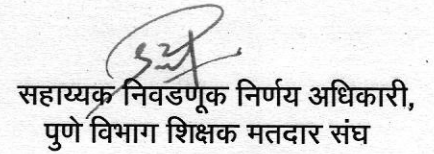 सहाय्यक निवडणूक निर्णय अधिकारी,
पुणे विभाग शिक्षक मतदार संघ